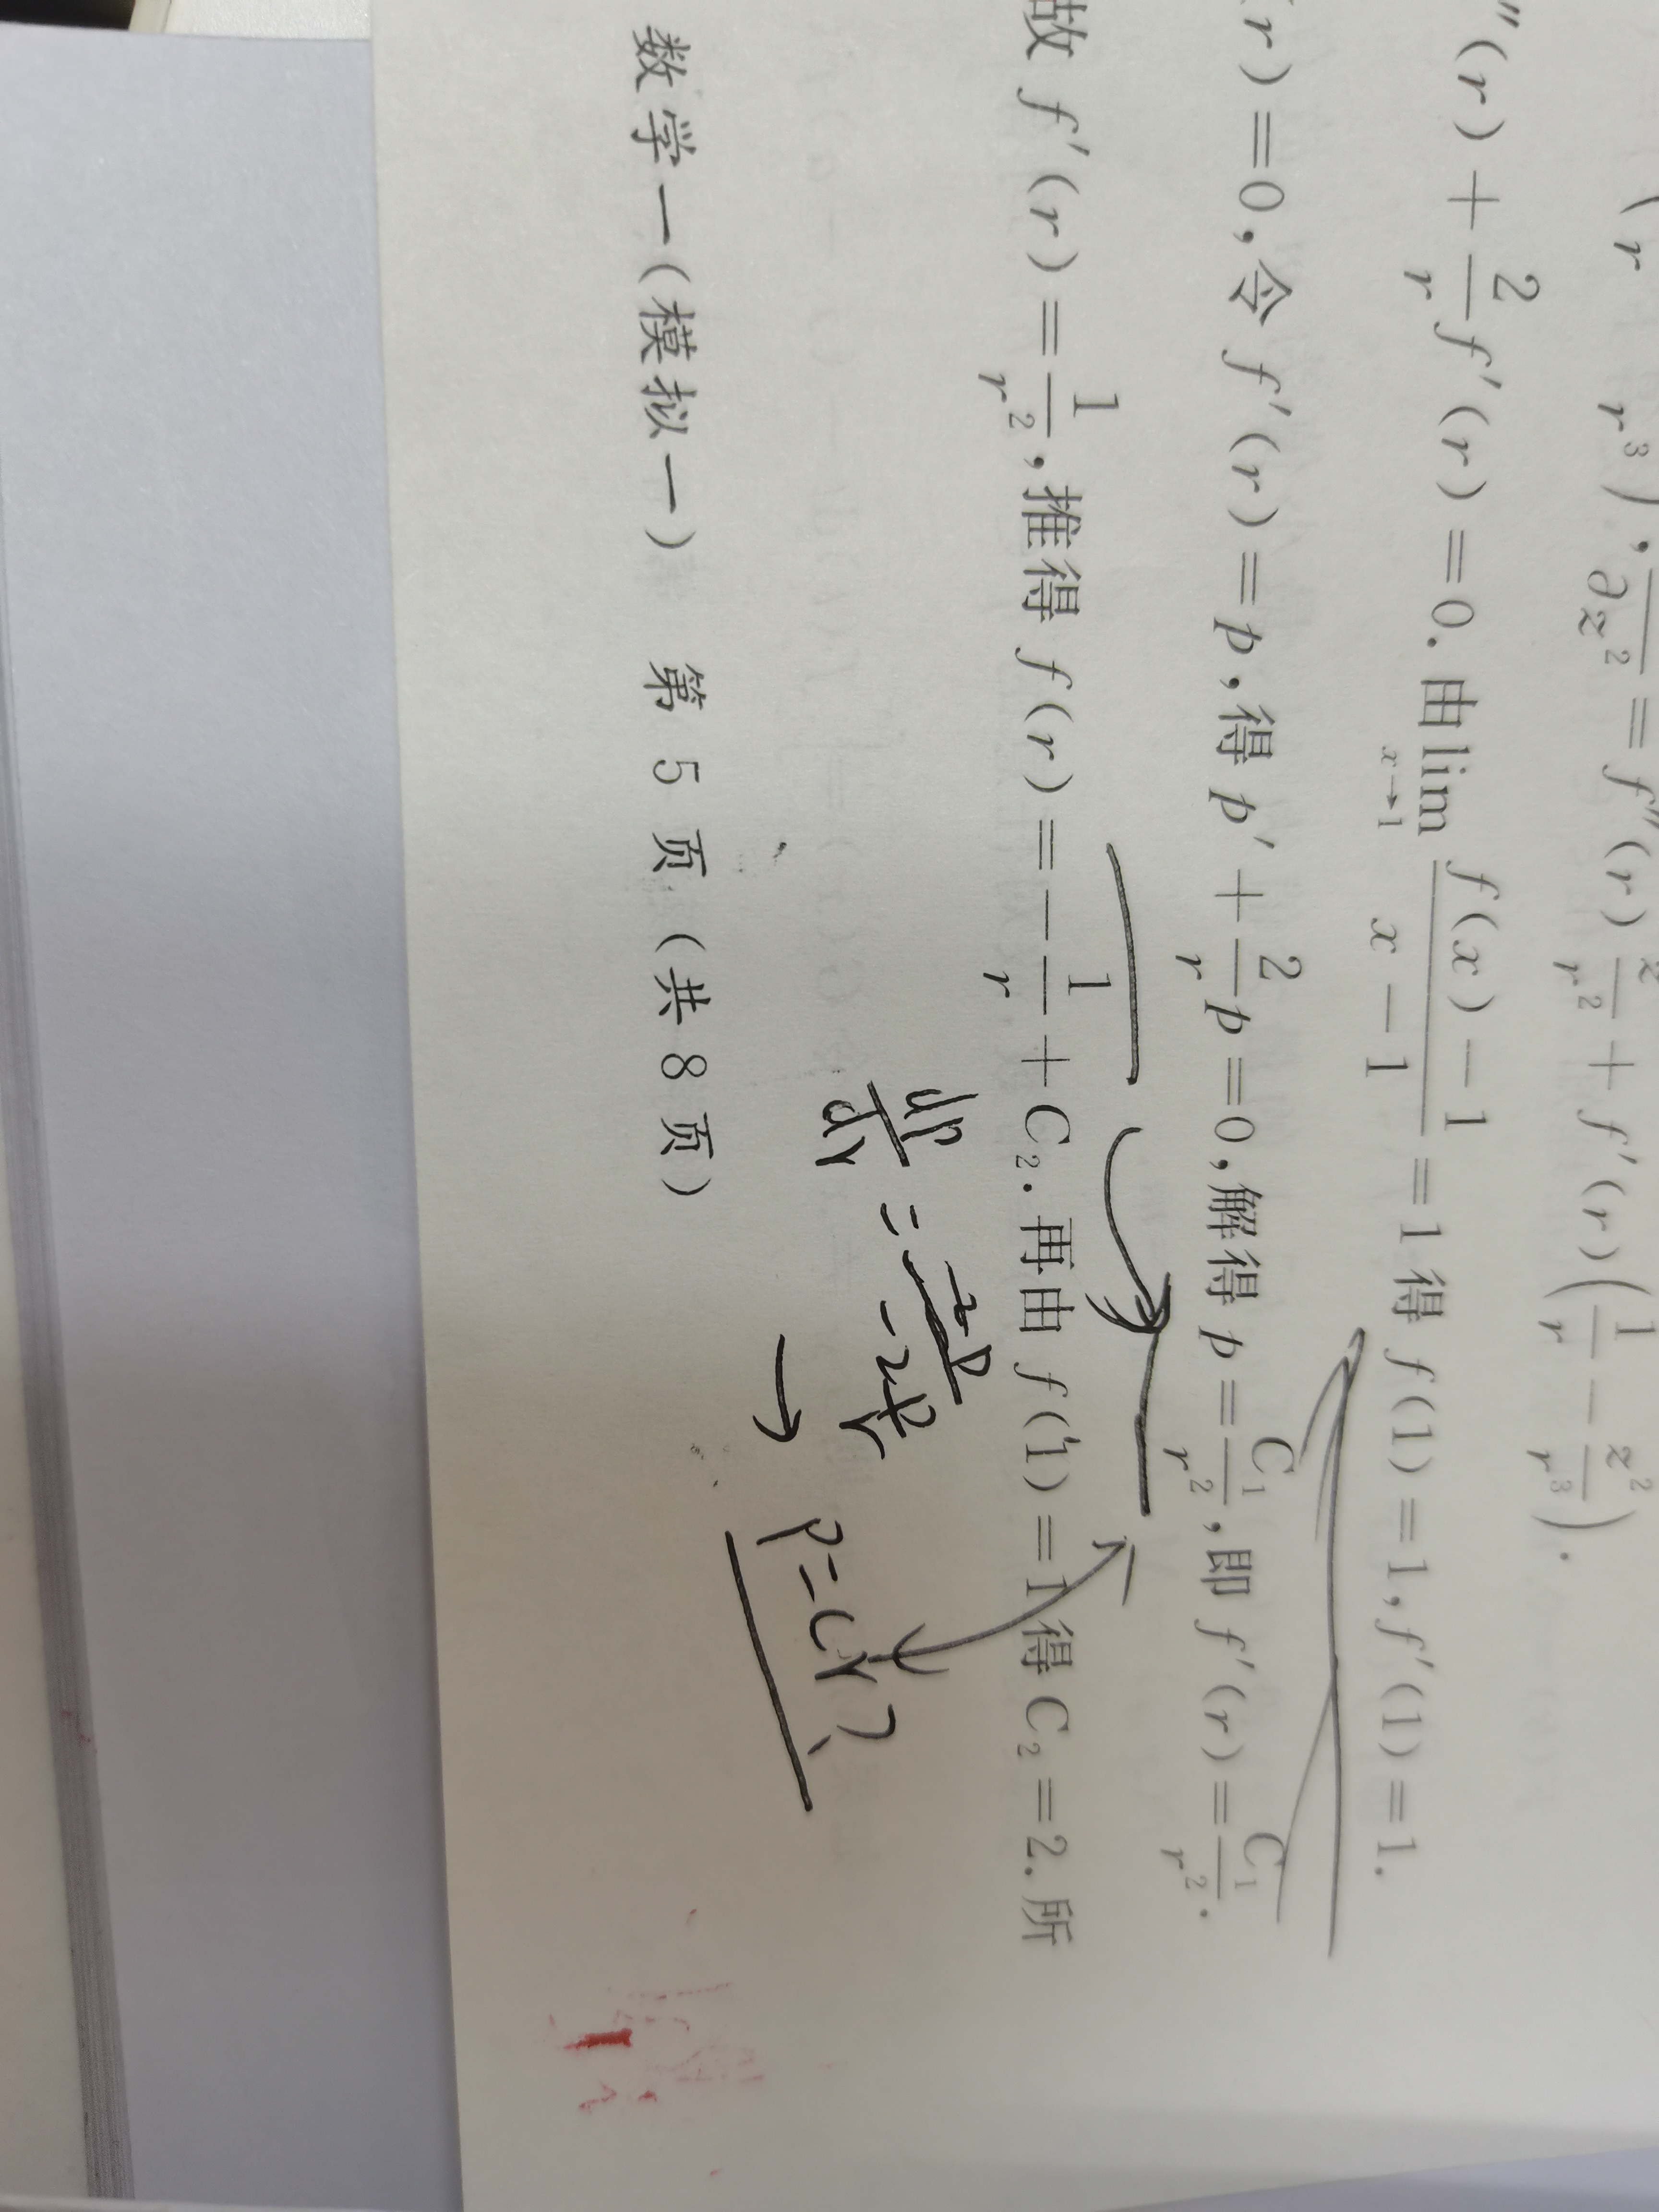 (r r³), ∂z² = f″(r) z/r² + f′(r)(1/r − z²/r³).
″(r) + 2/r f′(r) = 0. 由 lim x→1 f(x) − 1 / x − 1 = 1 得 f(1) = 1, f′(1) = 1.
(r) = 0, 令 f′(r) = p, 得 p′ + 2/r p = 0, 解得 p = C₁/r², 即 f′(r) = C₁/r².
故 f′(r) = 1/r², 推得 f(r) = − 1/r + C₂. 再由 f(1) = 1 得 C₂ = 2. 所
dp/dr = −2p/r
→ p = Cr?
数学一(模拟一) 第 5 页 (共 8 页)